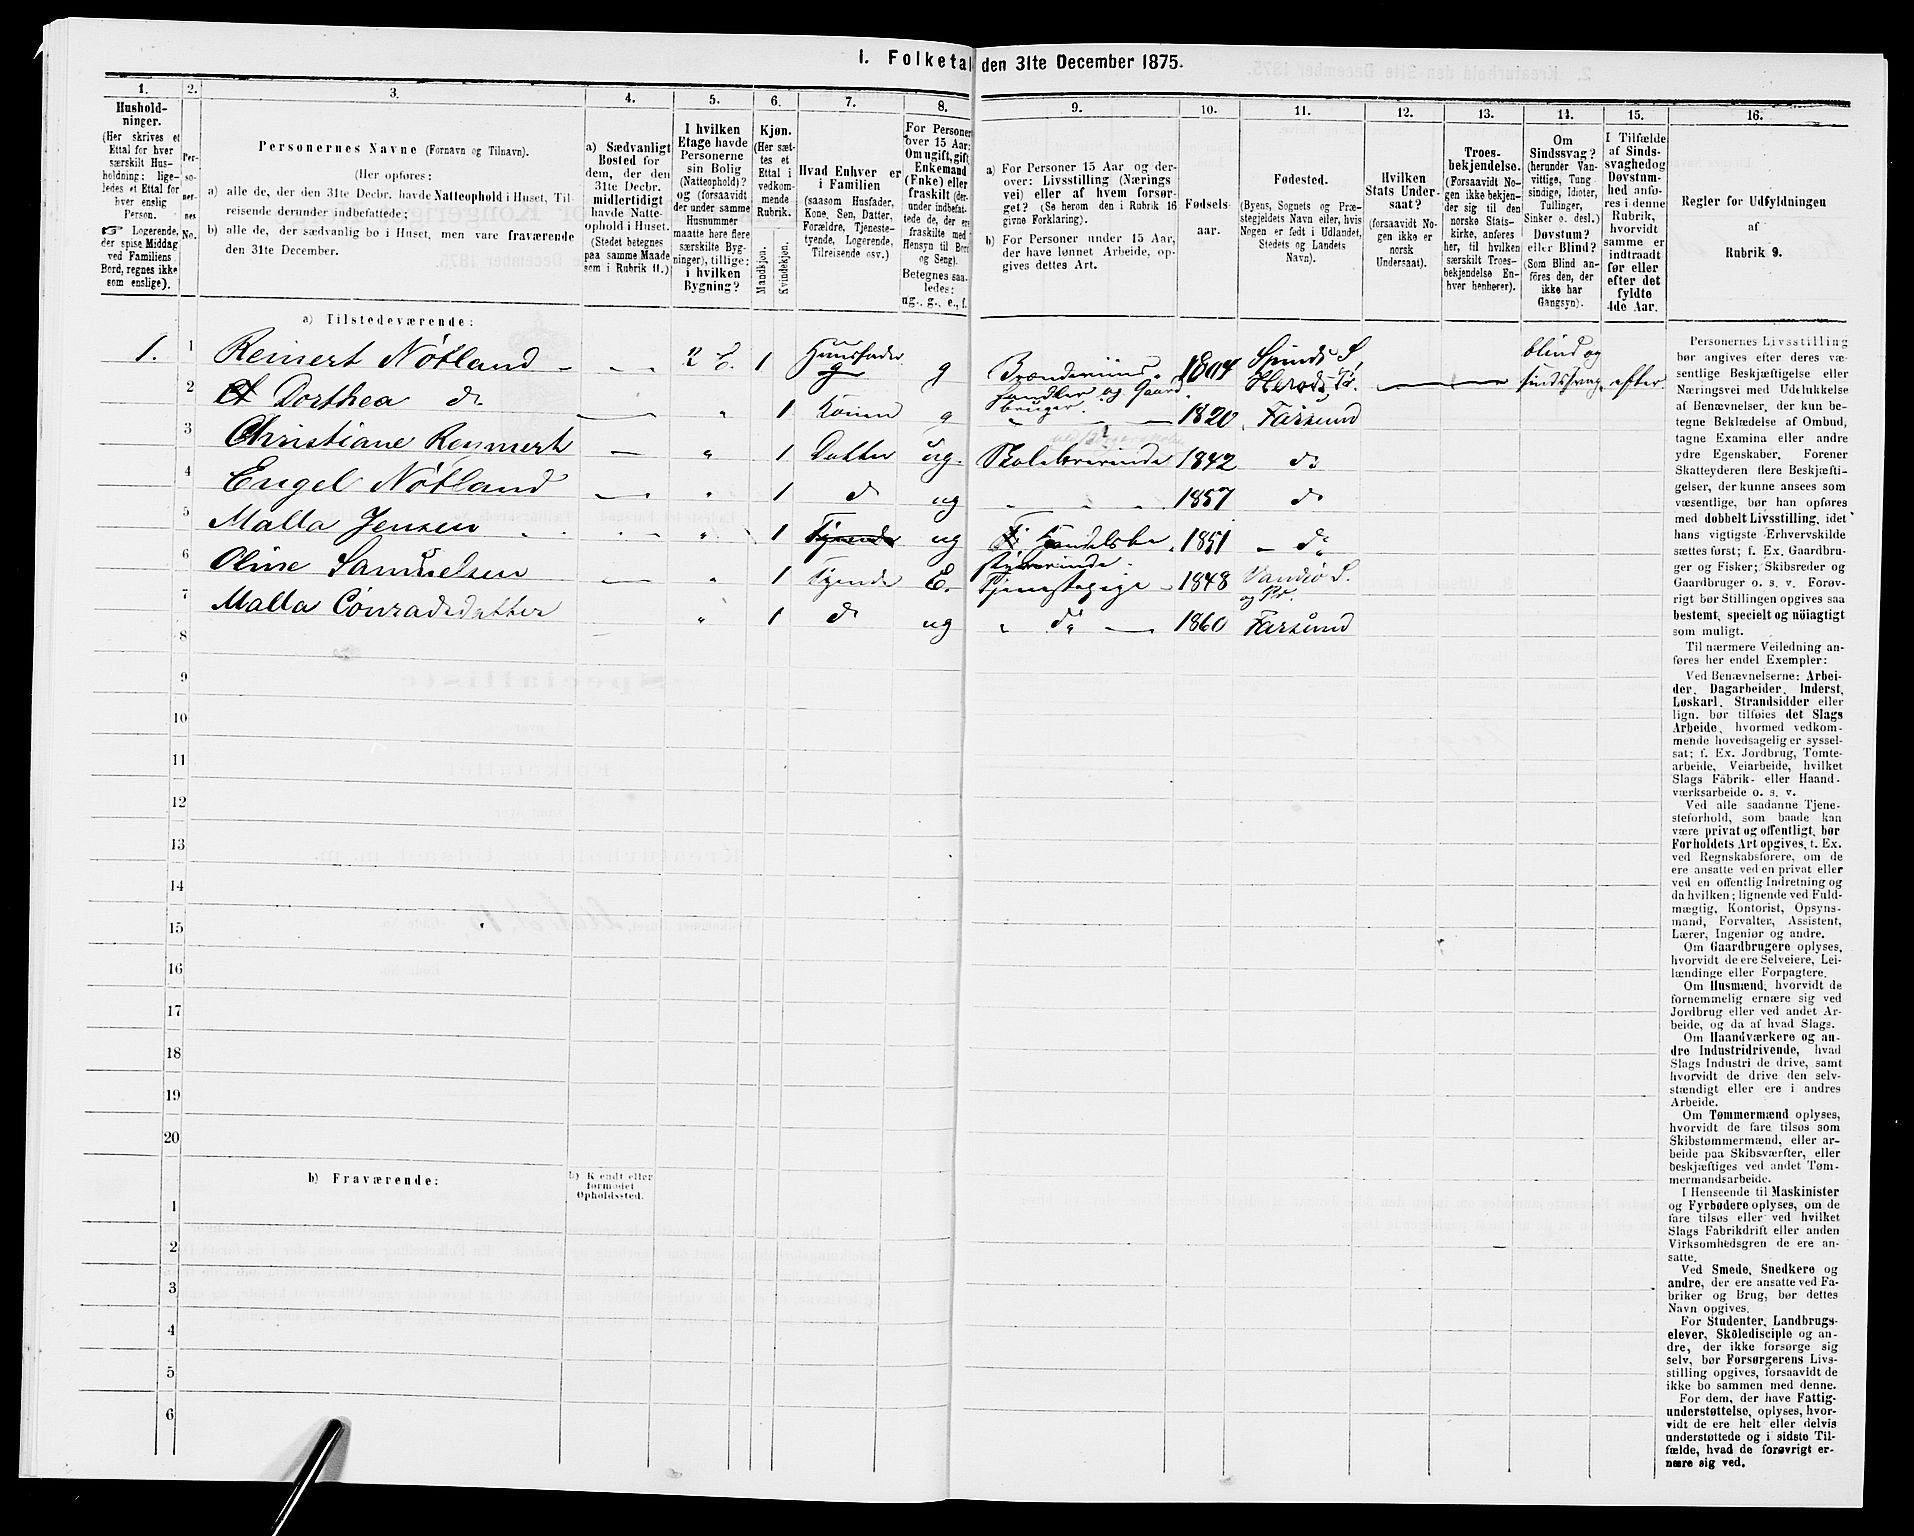 1. Folketal den 31te December 1875.
1.
Hushold-
ninger.
(Her skrives et
Ettal for hver
særskilt Hus-
holdning; lige-
ledes et Ettal for
hver enslig
Person.
☞ Logerende,
der spise Middag
ved Familiens
Bord, regnes ikke
som enslige).
2.
Per-
so-
ner-
nes
No.
3.
Personernes Navne (Fornavn og Tilnavn).
(Her opføres:
a) alle de, der den 31te Decbr. havde Natteophold i Huset, Til-
reisende derunder indbefattede;
b) alle de, der sædvanlig bo i Huset, men vare fraværende
den 31te December.
4.
a) Sædvanligt
Bosted for
dem, der den
31te Decbr.
midlertidigt
havde Natte-
ophold i Huset.
(Stedet betegnes
paa samme Maade
som i Rubrik 11.)
5.
I hvilken
Etage havde
Personerne
sin Bolig
(Natteophold)?
og (forsaavidt
der under samme
Husnummer
maatte høre flere
særskilte Byg-
ninger), tillige:
i hvilken
Bygning?
6.
Kjøn.
(Her sæt-
tes et
Ettal i
vedkom-
mende
Rubrik.
Mandkjøn.
Kvindekjøn.
7.
Hvad Enhver er
i Familien
(saasom Husfader,
Kone, Søn, Datter,
Forældre, Tjeneste-
tyende, Logerende,
Tilreisende osv.)
8.
For Personer
over 15 Aar:
Om ugift, gift,
Enkemand
(Enke) eller
fraskilt (der-
under indbefat-
tede de, der ere
fraskilte med
Hensyn til Bord
og Seng).
Betegnes saa-
ledes:
ug., g., e., f.
9.
a) For Personer 15 Aar og der-
over: Livsstilling (Nærings
vei) eller af hvem forsør-
get? (Se herom den i Rubrik 16
givne Forklaring).
b) For Personer under 15 Aar,
der have lønnet Arbeide, op-
gives dettes Art.
10.
Fødsels-
aar.
11.
Fødested.
(Byens, Sognets og Præ-
stegjeldets Navn eller, hvis
Nogen er født i Udlandet,
Stedets og Landets
Navn).
12.
Hvilken
Stats Under-
saat?
(forsaavidt No-
gen ikke er
norsk
Undersaat).
13.
Troes-
bekjendelse.
(Forsaavidt No-
gen ikke bekjen-
der sig til den
norske Stats-
kirke, anføres
her, til hvilken
særskilt Troes-
bekjendelse En-
hver henhører).
14.
Om
Sindssvag?
(herunder Van-
vittige, Tung-
sindige, Idioter,
Tullinger,
Sinker o. desl.)
Døvstum?
eller Blind?
(Som Blind an-
føres den, der
ikke har
Gangsyn).
15.
I Tilfælde
af Sinds-
svaghed og
Døvstum-
hed anfø-
res i denne
Rubrik,
hvorvidt
samme er
indtraadt
før eller
efter det
fyldte
4de Aar.
16.
Regler for Udfyldningen
af
Rubrik 9.
a) Tilstedeværende:
1. 1 Reinert Nøtland - - 2 E. 1 Huusfader g Brændeviins- handler og Gaard bruger. 1804 Spinds S, Herads Pr. blind og sindssvag. efter
2 Dorthea do " 1 Kone g " 1820 Farsund
3 Christiane Reymert - " 1 Datter ug. Skolelærerinde 1842 do
4 Engel Nøtland - " 1 do ug " " " 1857 do
5 Malla Jensen " 1 Tyende ug Handelsbe styrerinde 1851 - do
6 Oline Samuelsen - " 1 Tyende E. Tjenestepige - 1848 Vandsø S. og Pr.
7 Malla Conradsdatter " 1 do ug " do 1860 Farsund
8
9
10
11
12
13
14
15
16
17
18
19
20
b) Fraværende:
b) Kjendt eller
formodet
Opholdssted.
1
2
3
4
5
6
Personernes Livsstilling
bør angives efter deres væ-
sentlige Beskjæftigelse eller
Næringsvei med Udelukkelse
af Benævnelser, der kun be-
tegne Beklædelse af Ombud,
tagne Examina eller andre
ydre Egenskaber. Forener
Skatteyderen flere Beskjæfti-
gelser, der kunne ansees som
væsentlige, bør han opføres
med dobbelt Livsstilling, idet
hans vigtigste Erhvervskilde
sættes først; f. Ex. Gaardbru-
ger og Fisker; Skibsreder og
Gaardbruger o. s. v. Forøv-
rigt bør Stillingen opgives saa
bestemt, specielt og nöiagtigt
som muligt.
Til nærmere Veiledning an-
føres her endel Exempler:
Ved Benævnelserne: Arbei-
der, Dagarbeider, Inderst,
Løskarl, Strandsidder eller
lign. bør tilføies det Slags
Arbeide, hvormed vedkom-
mende hovedsagelig er syssel-
sat; f. Ex. Jordbrug, Tomte-
arbeide, Veiarbeide, hvilket
Slags Fabrik- eller Haand-
værksarbeide o. s. v.
Ved alle saadanne Tjene-
steforhold, som baade kan
være privat og offentligt, bør
Forholdets Art opgives, t. Ex.
ved Regnskabsførere, om de
ere ansatte ved en privat eller
ved en offentlig Indretning og
da hvilken; lignende ved Fuld-
mægtig, Kontorist, Opsyns-
mand, Forvalter, Assistent,
Lærer, Ingeniør og andre.
Om Gaardbrugere oplyses,
hvorvidt de ere Selveiere, Lei-
lændinge eller Forpagtere.
Om Husmænd, hvorvidt de
fornemmelig ernære sig ved
Jordbrug eller ved andet Ar-
beide, og da af hvad Slags.
Om Haandværkere og an-
dre Industridrivende, hvad
Slags Industri de drive, samt
hvorvidt de drive den selv-
stændigt eller ere i andres
Arbeide.
Om Tømmermænd oplyses,
hvorvidt de fare tilsøs som
Skibstømmermænd, eller ar-
beide paa Skibsværfter, eller
beskjæftiges ved andet Tøm-
mermandsarbeide.
I Henseende til Maskinister
og Fyrbødere oplyses, om de
fare tilsøs eller ved hvilket
Slags Fabrikdrift eller anden
Virksomhedsgren de ere an-
satte.
Ved Smede, Snedkere og
andre, der ere ansatte ved Fa-
briker og Brug, bør dettes
Navn opgives.
For Studenter, Landbrugs-
elever, Skoledisciple og an-
dre, der ikke forsørge sig
selv, bør Forsørgerens Livs-
stilling opgives, forsaavidt de
ikke bo sammen med denne.
For dem, der have Fattig-
understøttelse, oplyses, hvor-
vidt de ere helt eller delvis
understøttede og i sidste Til-
fælde, hvad de forøvrigt er-
nære sig ved.